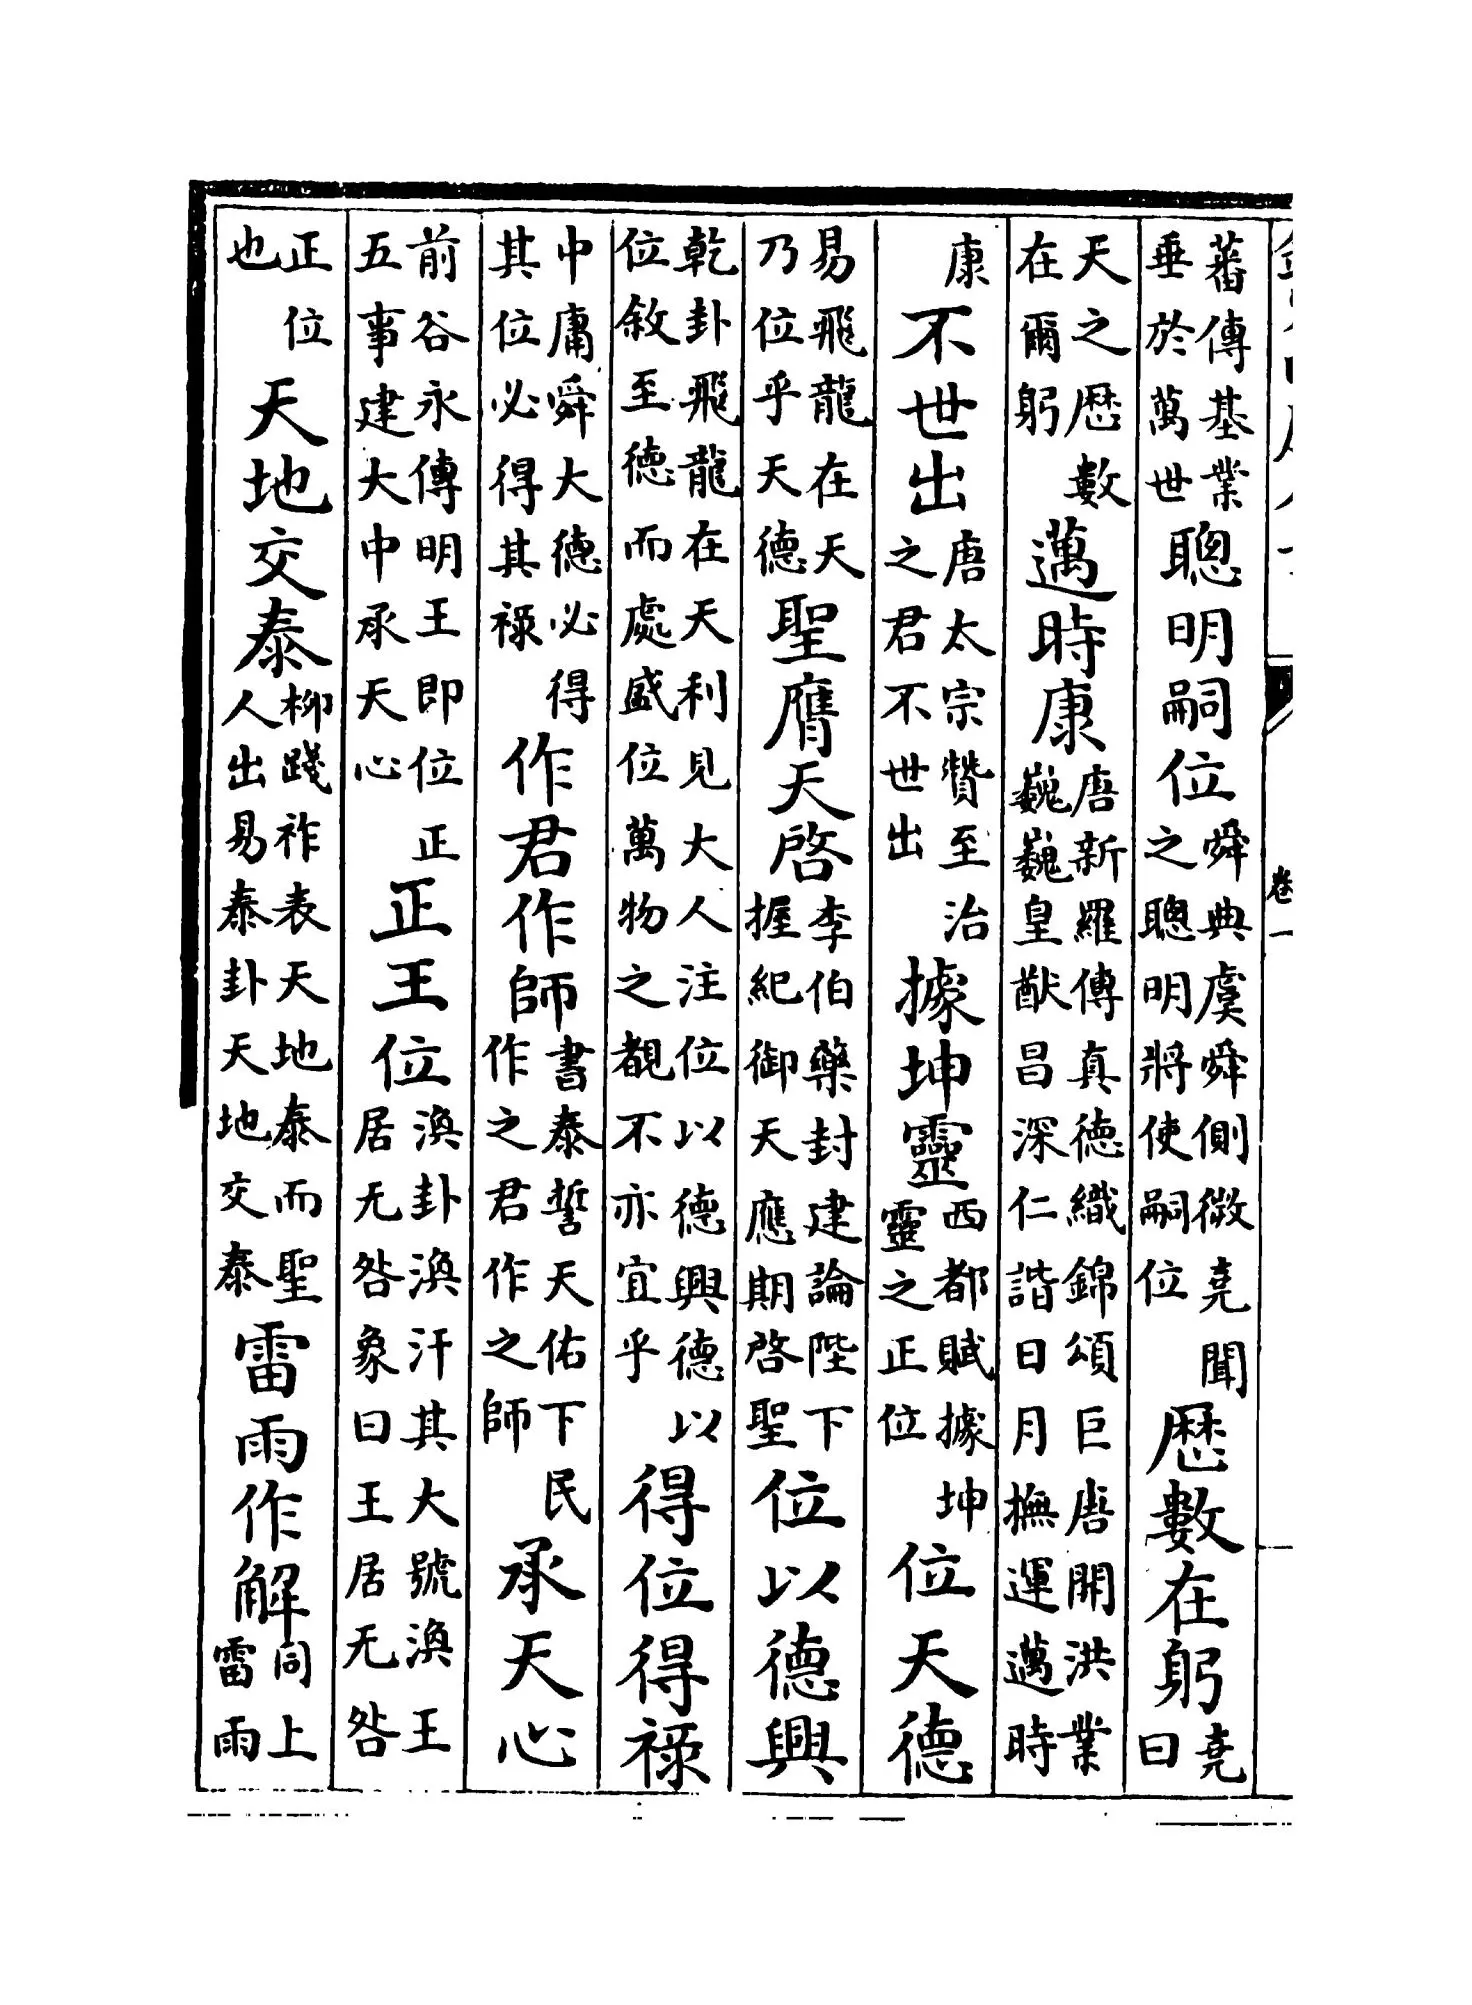 蕃傳基業垂於萬世聰明嗣位舜典虞舜側微堯聞之聰明將使嗣位歴數在躬堯曰
天之歴數在爾躬邁時康唐新羅傳真德織錦頌巨唐開洪業巍巍皇猷昌深仁諧日月撫運邁時
康不世出唐太宗贊至治之君不世出據坤靈西都賦據坤靈之正位位天德
易飛龍在天乃位乎天德聖膺天啓李伯藥封建論陛下握紀御天應期啓聖位以德興
乾卦飛龍在天利見大人注位以德興德以位敘至德而處盛位萬物之覩不亦宜乎得位得禄
中庸舜大德必得其位必得其禄作君作師書泰誓天佑下民作之君作之師承天心
前谷永傳明王即位正五事建大中承天心正王位渙卦渙汗其大號渙王居无咎象曰王居无咎
正位也天地交泰柳踐祚表天地泰而聖人出易泰卦天地交泰雷雨作解同上雷雨
卷一